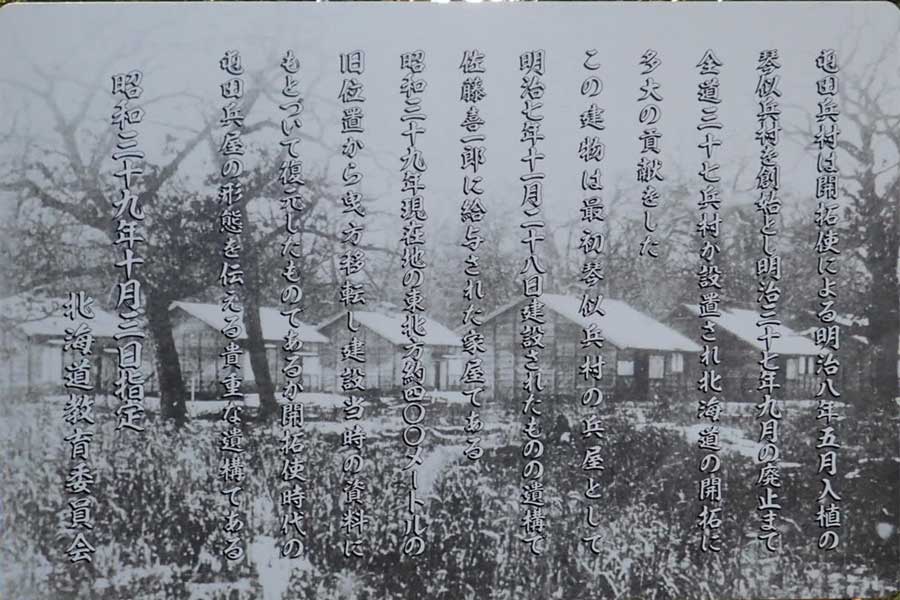 屯田兵村は開拓使による明治八年五月入植の
琴似兵村を創始とし明治三十七年九月の廃止まて
全道三十七兵村か設置され北海道の開拓に
多大の貢献をした
この建物は最初琴似兵村の兵屋として
明治七年十一月二十八日建設されたものの遺構て
佐藤喜一郎に給与された家屋てある
昭和三十九年現在地の東北方約四〇〇メートルの
旧位置から曳方移転し建設当時の資料に
もとづいて復元したものてあるか開拓使時代の
屯田兵屋の形態を伝える貴重な遺構てある
昭和三十九年十月三日指定
北海道教育委員会